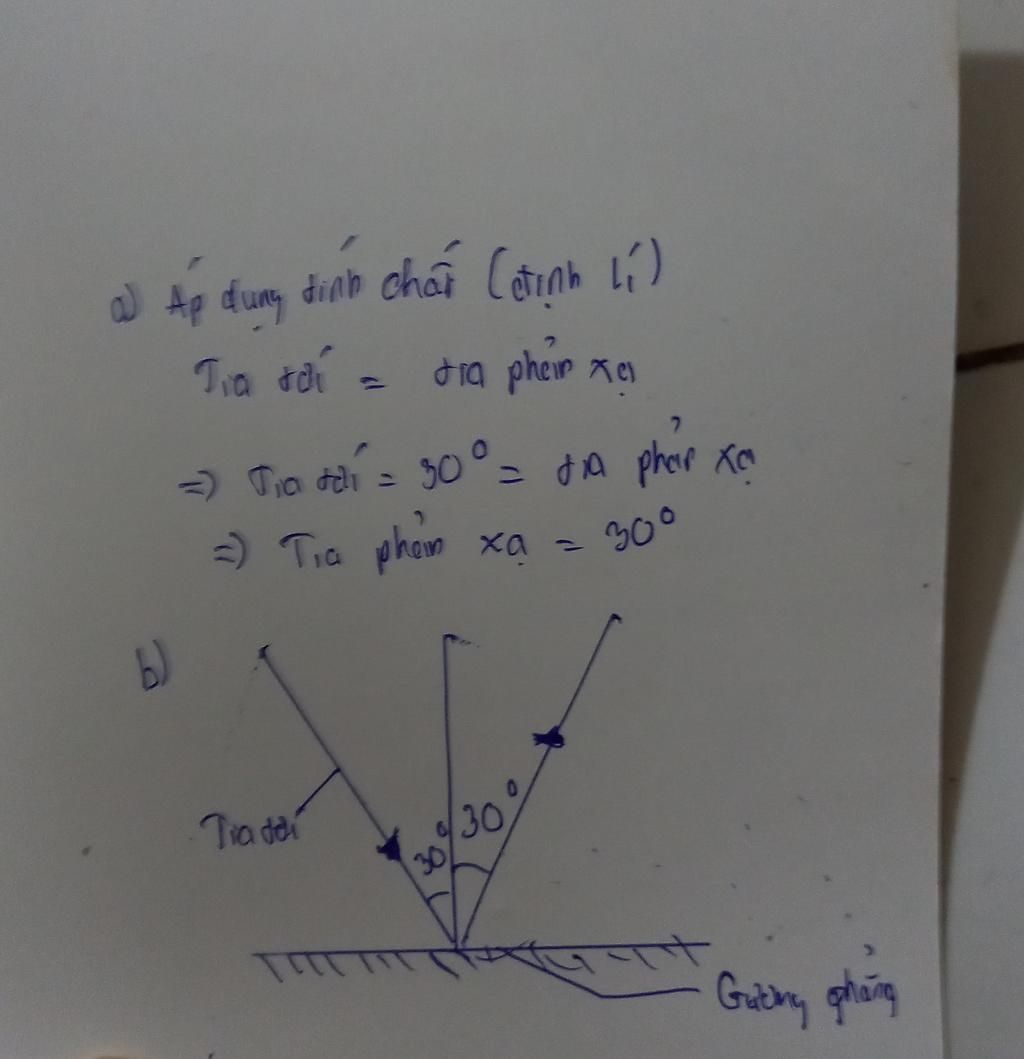 a) Áp dụng tính chất (định lí)
Tia tới = tia phản xạ
=> Tia tới = 30° = tia phản xạ
=> Tia phản xạ = 30°
b)
30°
Tia tới
30°
Gương phẳng